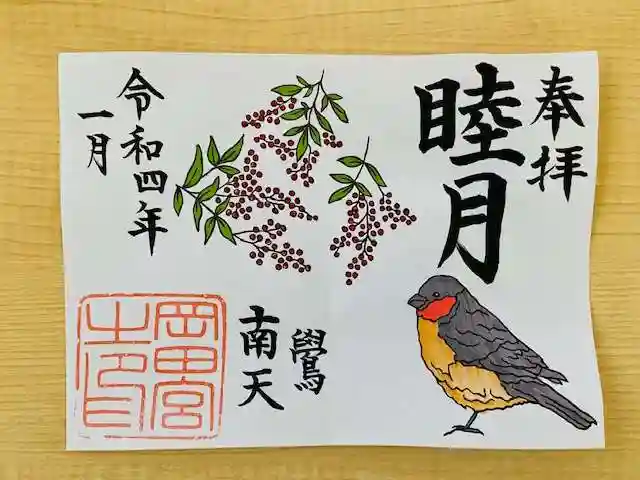 奉拝
睦月
鷽
南天
令和四年
一月
岡田宮
之印